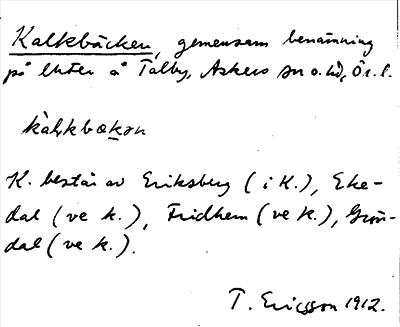 Kalkbäcken, gemensam benämning
på lhter å Tälby, Askers sn o. hd, Ör. l.
kàḷkbækən
K. består av Eriksberg (i K.), Eke-
dal (ve K.), Fridhem (ve K.), Grön-
dal (ve K.).
T. Ericsson 1912.